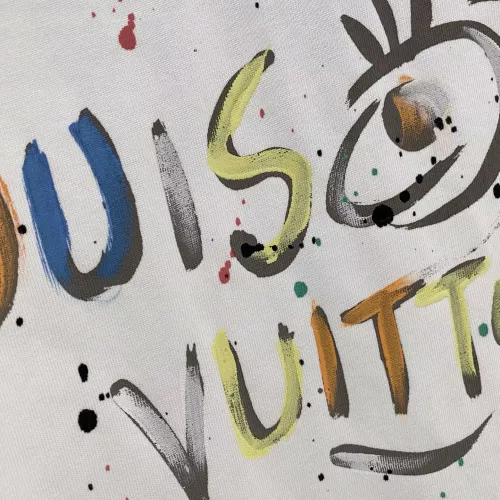 OUIS
VUITT